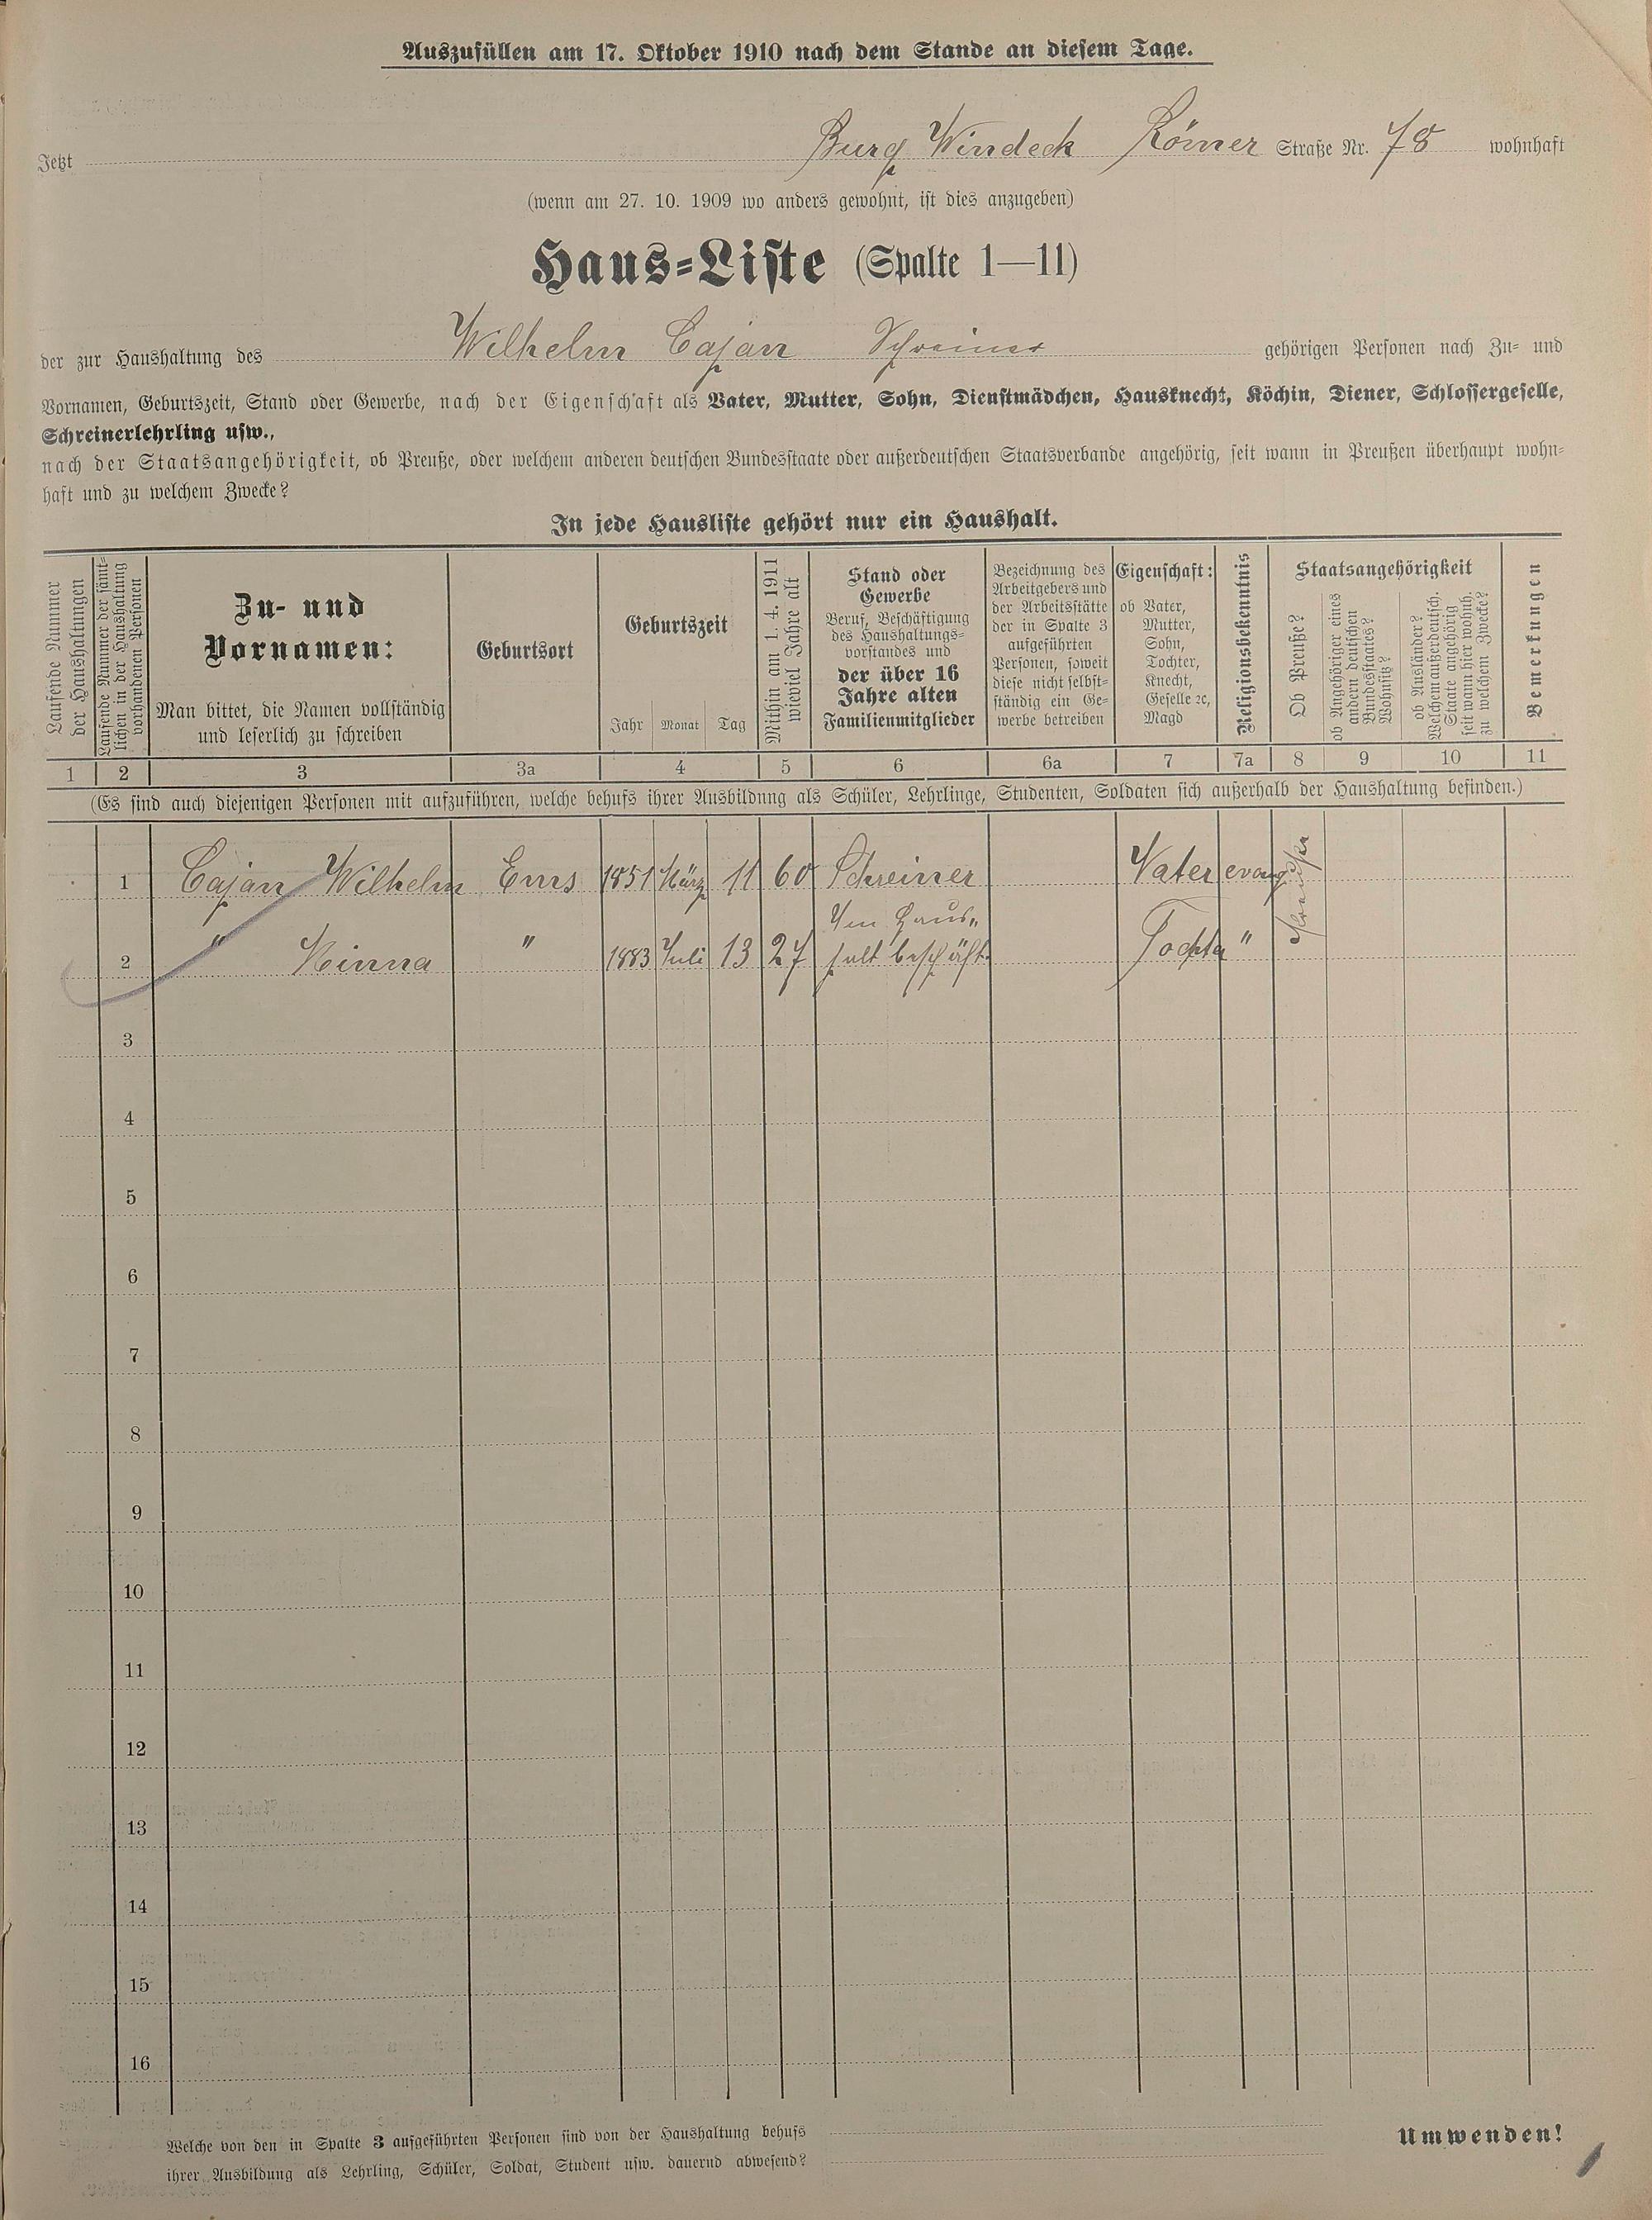 Auszufüllen am 17. Oktober 1910 nach dem Stande an diesem Tage.
Jetzt Burg Windeck Römer Straße Nr. 78 wohnhaft
(wenn am 27. 10. 1909 wo anders gewohnt, ist dies anzugeben)
Haus-Liste (Spalte 1—11)
der zur Haushaltung des Wilhelm Cajan Schreiner gehörigen Personen nach Zu- und
Vornamen, Geburtszeit, Stand oder Gewerbe, nach der Eigenschaft als Vater, Mutter, Sohn, Dienstmädchen, Hausknecht, Köchin, Diener, Schlossergeselle,
Schreinerlehrling usw.,
nach der Staatsangehörigkeit, ob Preuße, oder welchem anderen deutschen Bundesstaate oder außerdeutschen Staatsverbande angehörig, seit wann in Preußen überhaupt wohn-
haft und zu welchem Zwecke?
In jede Hausliste gehört nur ein Haushalt.
Laufende Nummer
der Haushaltungen
Laufende Nummer der sämt-
lichen in der Haushaltung
vorhandenen Personen
Zu- und
Vornamen:
Man bittet, die Namen vollständig
und leserlich zu schreiben
Geburtsort
Geburtszeit
Jahr Monat Tag
Mithin am 1. 4. 1911
wieviel Jahre alt
Stand oder
Gewerbe
Beruf, Beschäftigung
des Haushaltungs-
vorstandes und
der über 16
Jahre alten
Familienmitglieder
Bezeichnung des
Arbeitgebers und
der Arbeitsstätte
der in Spalte 3
aufgeführten
Personen, soweit
diese nicht selbst-
ständig ein Ge-
werbe betreiben
Eigenschaft:
ob Vater,
Mutter,
Sohn,
Tochter,
Knecht,
Geselle ꝛc,
Magd
Religionsbekenntnis
Staatsangehörigkeit
Ob Preuße?
ob Angehöriger eines
andern deutschen
Bundesstaates?
Wohnsitz?
ob Ausländer?
Welchem außerdeutsch.
Staate angehörig
seit wann hier wohnh.
zu welchem Zwecke?
Bemerkungen
1 2 3 3a 4 5 6 6a 7 7a 8 9 10 11
(Es sind auch diejenigen Personen mit aufzuführen, welche behufs ihrer Ausbildung als Schüler, Lehrlinge, Studenten, Soldaten sich außerhalb der Haushaltung befinden.)
1 Cajan Wilhelm Ems 1851 März 11 60 Schreiner Vater evang. Preuße
Im Haus-
2 " Minna " 1883 Juli 13 27 halt beschäft. Tochter "
3
4
5
6
7
8
9
10
11
12
13
14
15
16
Welche von den in Spalte 3 aufgeführten Personen sind von der Haushaltung behufs
ihrer Ausbildung als Lehrling, Schüler, Soldat, Student usw. dauernd abwesend?
Umwenden!